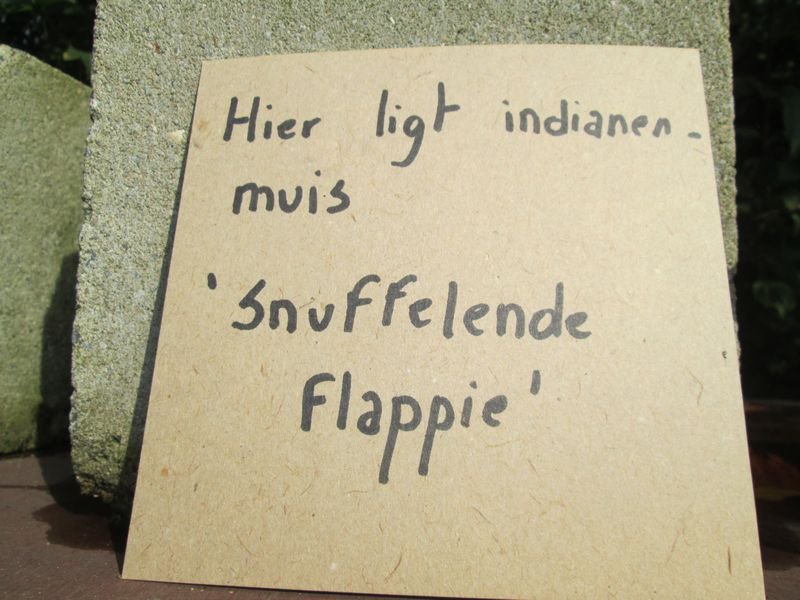 Hier ligt indianen-
muis
'Snuffelende
Flappie'